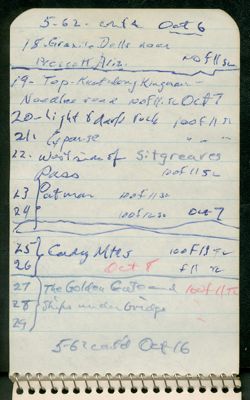 5-62- cont'd Oct 6
18- Granite Dells near
Prescott Ariz. 100 f11 SC
19- Top - Kingman -
Needles road 100 f11 SC Oct 7
20- Light & dark rock 100 f11 SC
21- Expanse " "
22- West side of Sitgreaves
Pass 100 f11 SC
23 Oatman 100 f11 SC
24 100 f11 SC Oct 7
25 Cady Mtns 100 f11 SC
26 Oct 8 f11 SC
27 The Golden Gate and 100 f11 SC
28 Ships under bridge
29
5-62 cont'd Oct 16